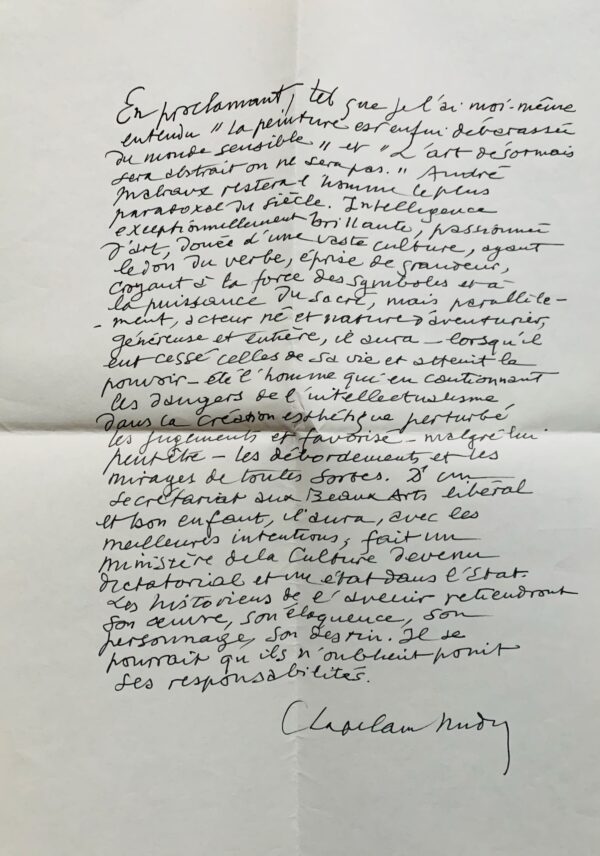 En proclamant, tel que je l'ai moi-même
entendu "La peinture est enfin débarassée
du monde sensible" et "L'art désormais
sera abstrait ou ne sera pas." André
Malraux restera l'homme le plus
paradoxal du siècle. Intelligence
exceptionnellement brillante, passionnée
d'art, douée d'une vaste culture, ayant
le don du verbe, éprise de grandeur,
croyant à la force des symboles et à
la puissance du sacré, mais parallèle-
-ment, acteur né et nature d'aventurier,
généreuse et entière, il aura - lorsqu'il
eut cessé celles de sa vie et atteint le
pouvoir - été l'homme qui en cautionnant
les dangers de l'intellectualisme
dans la création esthétique perturbé
les jugements et favorisé - malgré lui
peut être - les débordements et les
mirages de toutes sortes. D'un
secrétariat aux Beaux Arts libéral
et bon enfant, il aura, avec les
meilleures intentions, fait un
ministère de la Culture devenu
dictatorial et un état dans l'Etat.
Les historiens de l'avenir retiendront
son œuvre, son éloquence, son
personnage, son destin. Il se
pourrait qu'ils n'oublient point
ses responsabilités.
Chapelain Midy